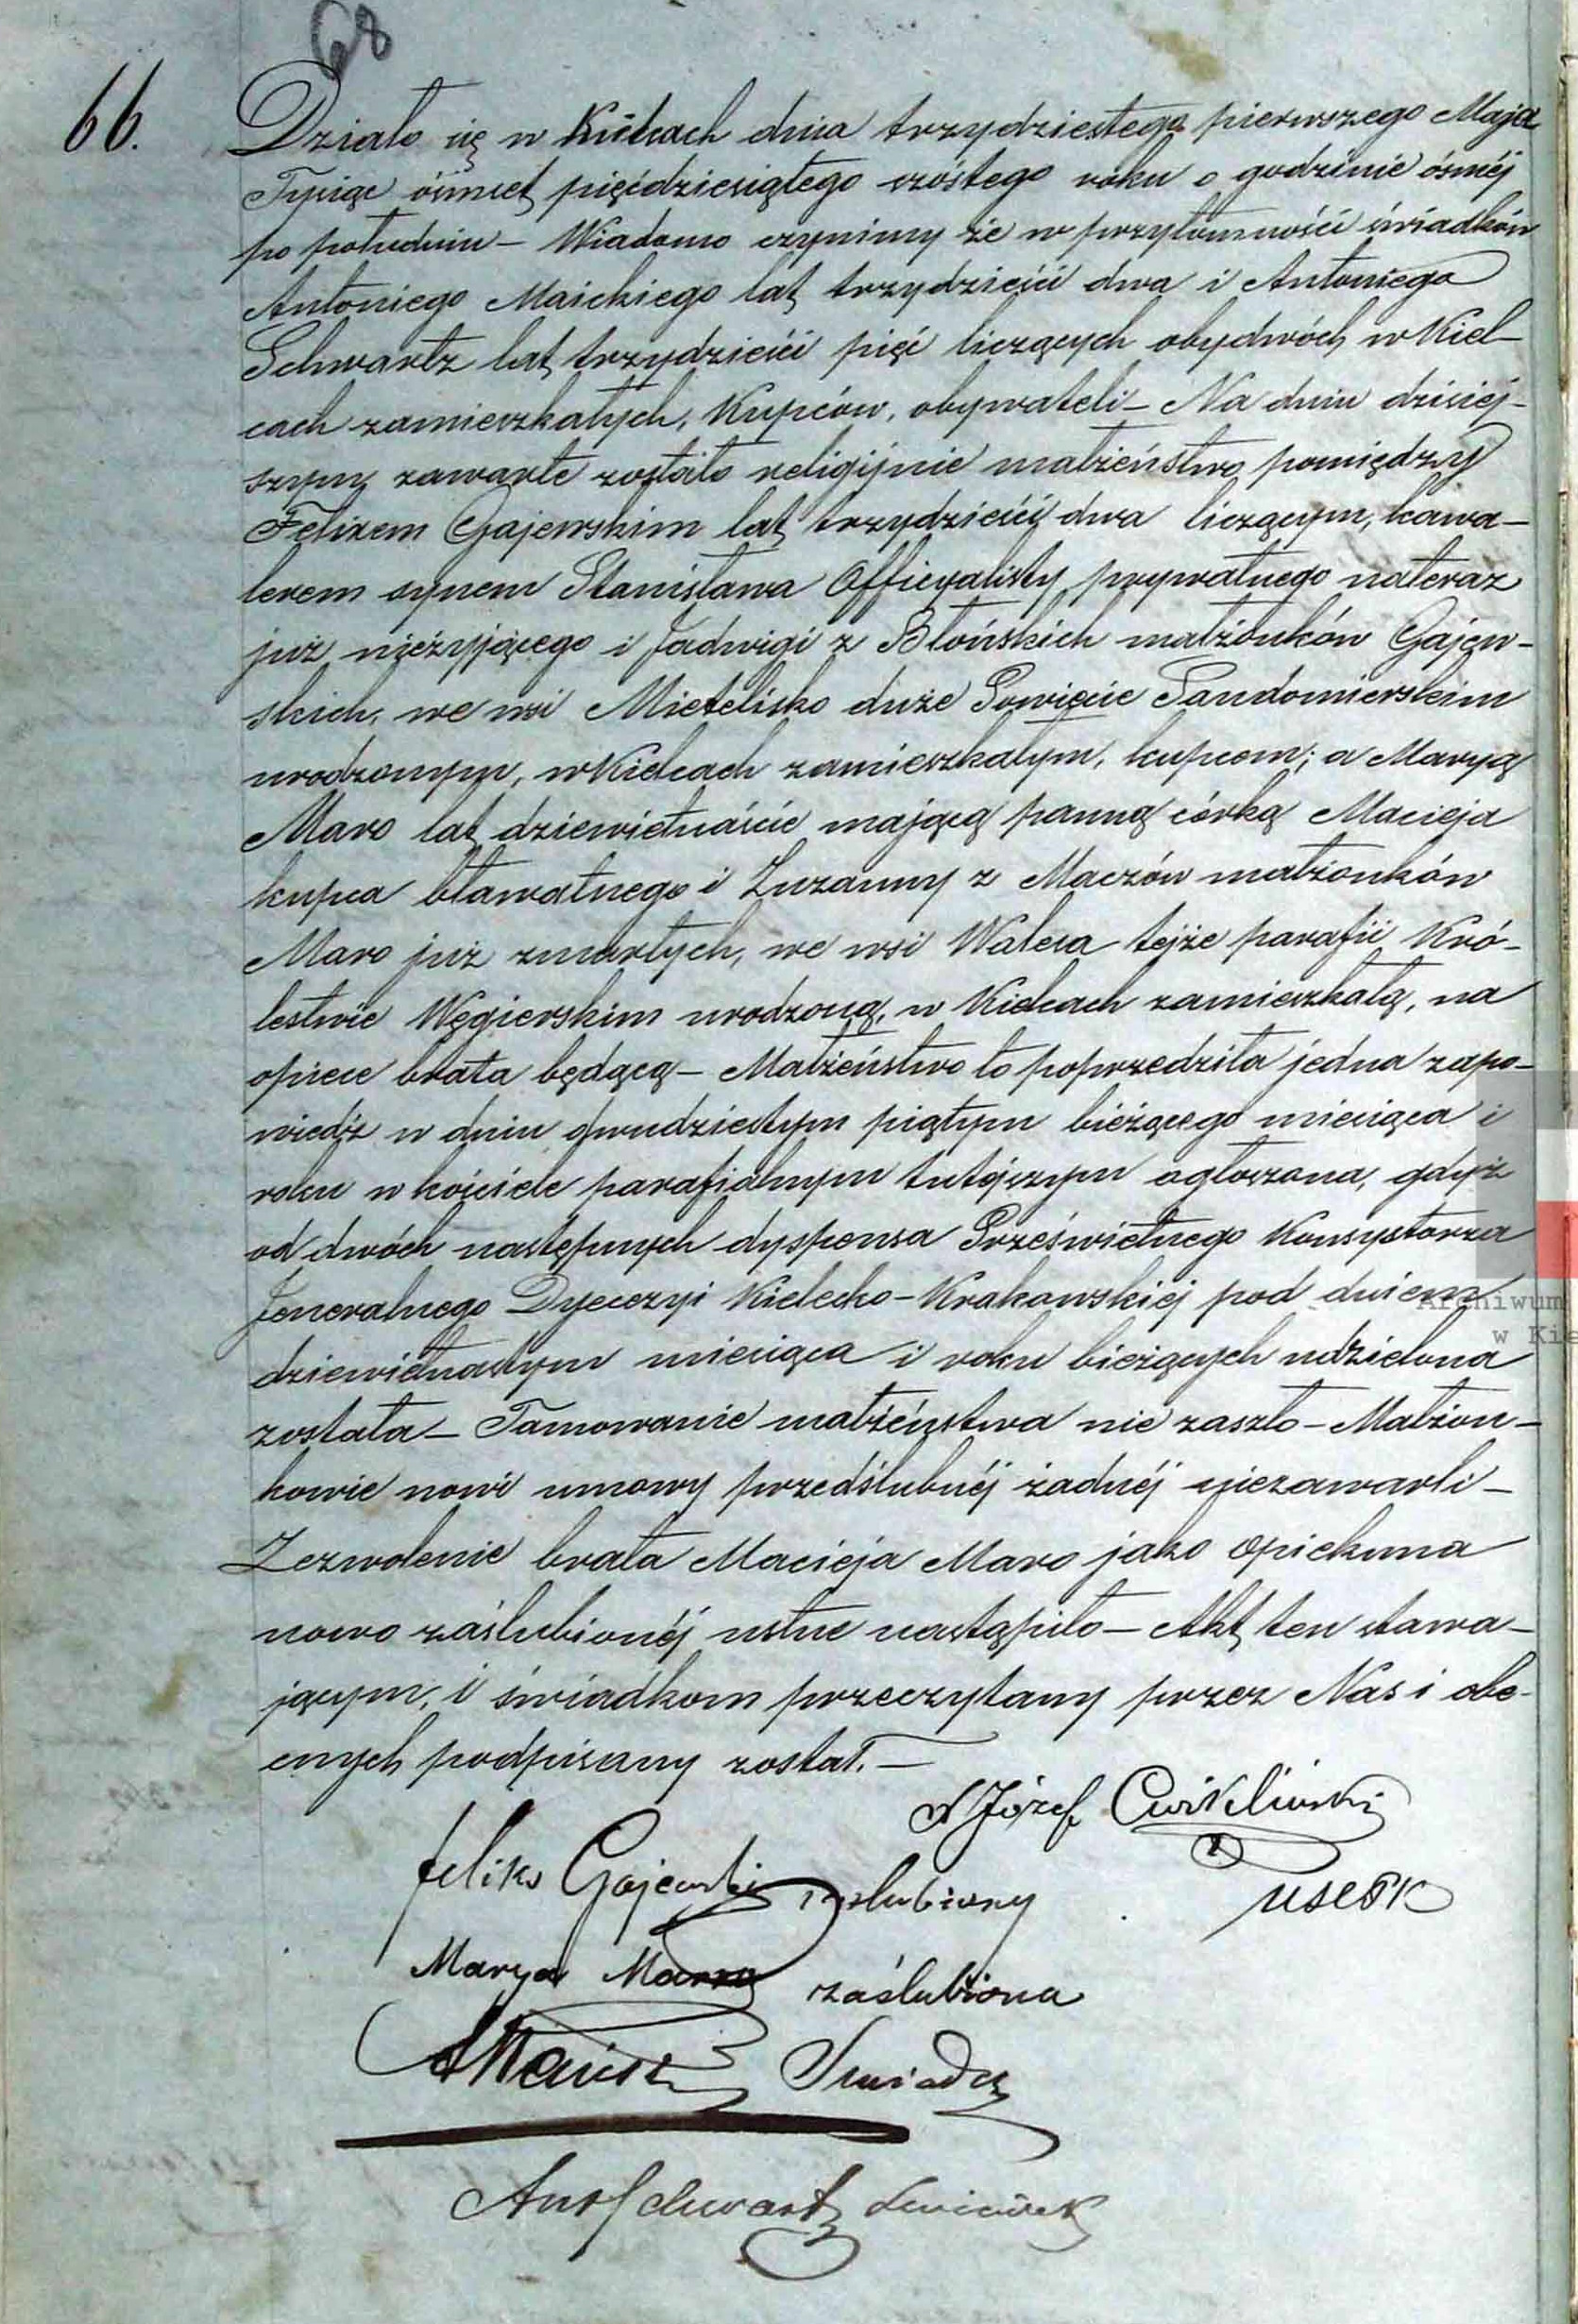 68
66.
Działo się w Kielcach dnia trzydziestego pierwszego Maja
Tysiąc ośmset pięćdziesiątego szóstego roku o godzinie ósméj
po południu – Wiadomo czynimy że w przytomności świadków
Antoniego Maickiego lat trzydzieści dwa i Antoniego
Schwartz lat trzydzieści pięć liczących obydwóch w Kiel-
cach zamieszkałych, Kupców, obywateli – Na dniu dzisiéj-
szym zawarte zostało religijnie małżeństwo pomiędzy
Felixem Gajewskim lat trzydzieści dwa liczącym, kawa-
lerem synem Stanisława Officyalisty prywatnego nateraz
już nieżyjącego i Jadwigi z Błońskich małżonków Gajew-
skich, we wsi Mietelisko duże Powiecie Sandomierskim
urodzonym, w Kielcach zamieszkałym, kupcem; a Maryą
Maro lat dziewiętnaście mającą panną córką Macieja
kupca bławatnego i Zuzanny z Maczów małżonków
Maro już zmarłych, we wsi Walcza tejże parafii Kró-
lestwie Węgierskim urodzoną, w Kielcach zamieszkałą, na
opiece brata będącą – Małżeństwo to poprzedziła jedna zapo-
wiedź w dniu dwudziestym piątym bieżącego miesiąca i
roku w kościele parafialnym tutéjszym ogłoszona, gdyż
od dwóch następnych dyspensa Prześwietnego Konsystorza
Jeneralnego Dyecezyi Kielecko-Krakowskiéj pod dniem
dziewiętnastym miesiąca i roku bieżących udzielona
została – Tamowanie małżeństwa nie zaszło – Małżon-
kowie nowi umowy przedślubnéj żadnéj niezawarli –
Zezwolenie brata Macieja Maro jako opiekuna
nowo zaślubionéj ustne nastąpiło – Akt ten stawa-
jącym, i świadkom przeczytany przez Nas i obe-
cnych podpisany został. –
X Józef Ćwikliński
Feliks Gajewski zaślubiony
USCPK
Marya Maro zaślubiona
AMaicki Swiadek
Ant Schwartz Swiadek
Archiwum
w Kie